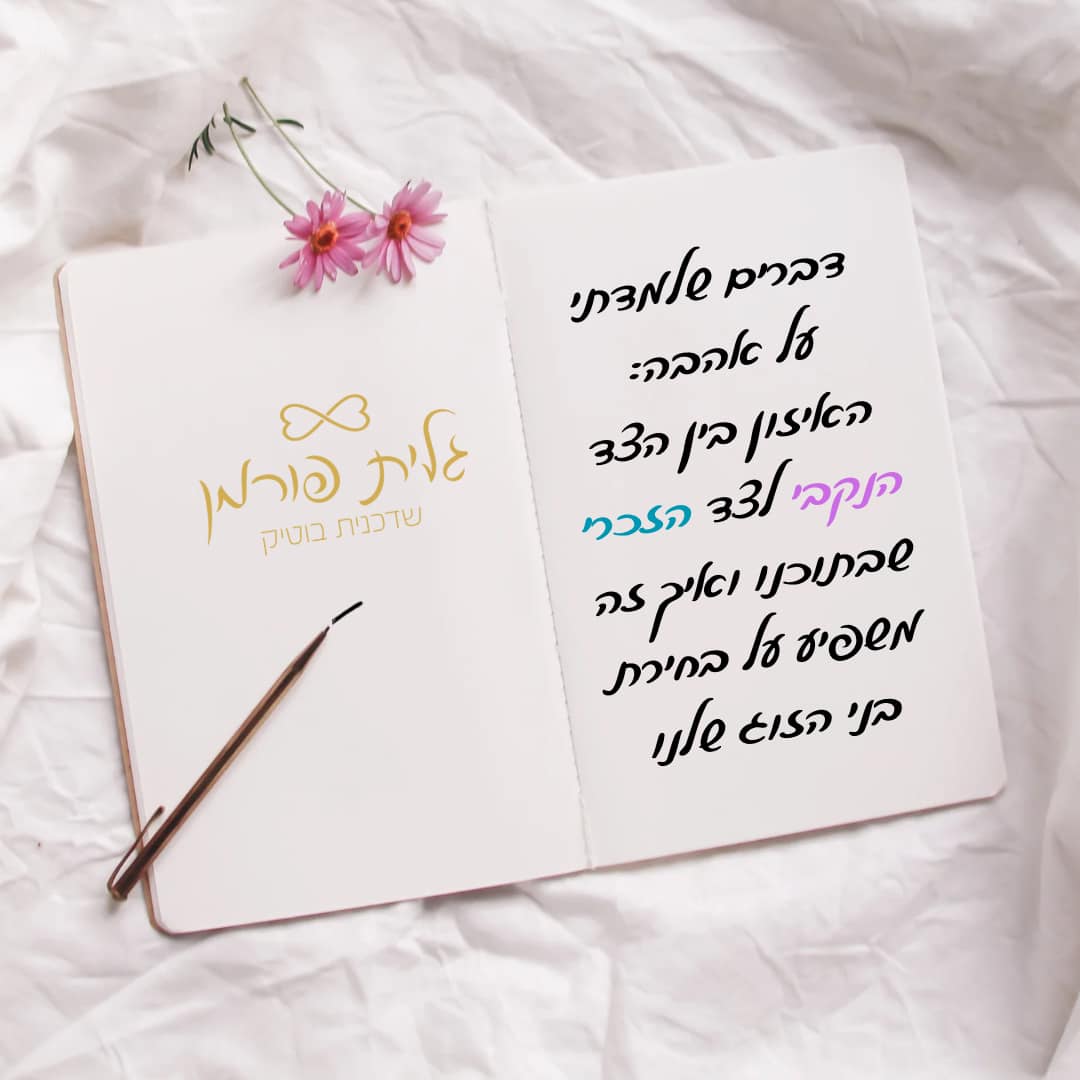 דברים שלמדתי
על אהבה:
האיזון בין הצד
הנקבי לצד הזכרי
שבתוכנו ואיך זה
משפיע על בחירת
בני הזוג שלנו
גלית פורמן
שדכנית בוטיק